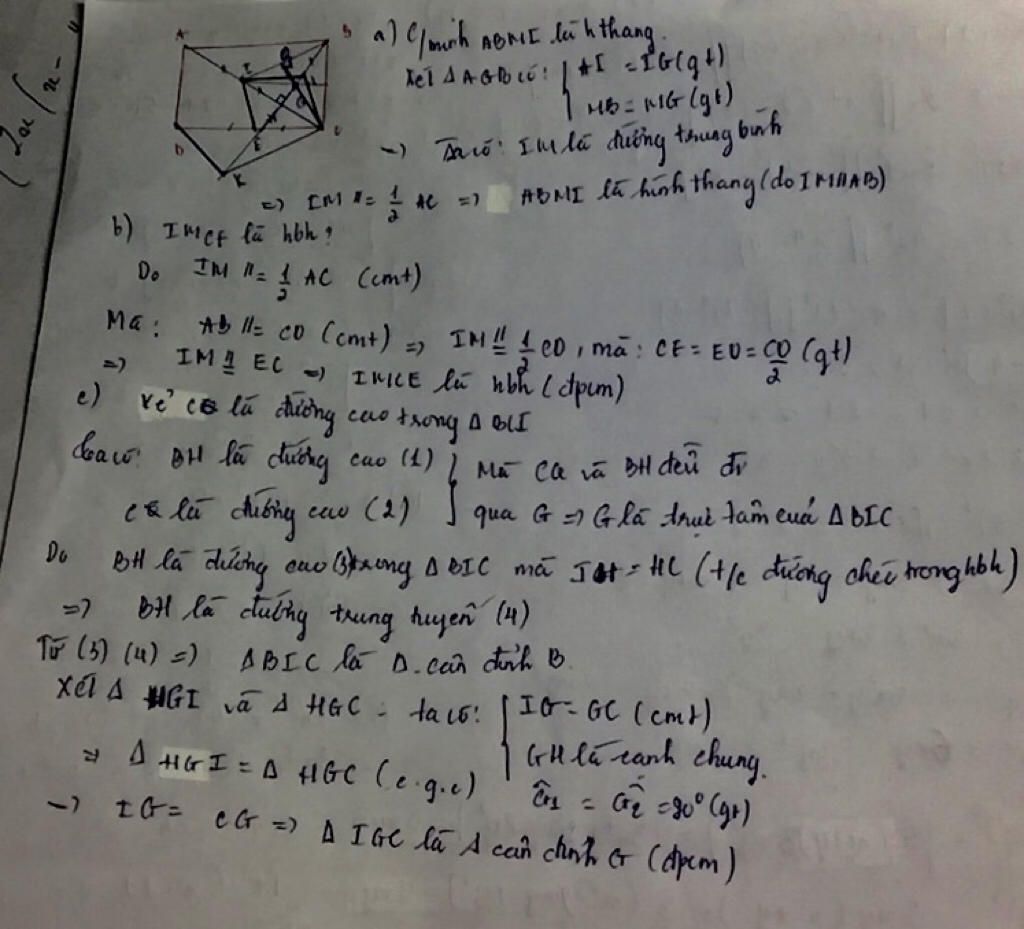 a) C/minh ABMI là h thang.
Xét Δ AGB có: { AI = IG (gt)
MB = MG (gt)
→ Ta có: IM là đường trung bình
=> IM //= 1/2 AC => ABMI là hình thang (do IM//AB)
b) IMCE là hbh?
Do IM //= 1/2 AC (cmt)
Mà: AB //= CD (cmt) => IM //= 1/2 CD, mà: CE = ED = CD/2 (gt)
=> IM //= EC => IMCE là hbh (đpcm)
c) Kẻ CQ là đường cao trong Δ BCI
Ta có: BH là đường cao (1) } Mà CQ và BH đều đi
CQ là đường cao (2) } qua G => G là trực tâm của Δ BIC
Do BH là đường cao (3) trong Δ BIC mà IH = HC (t/c đường chéo trong hbh)
=> BH là đường trung tuyến (4)
Từ (3) (4) => Δ BIC là Δ. cân đỉnh B.
Xét Δ HGI và Δ HGC - ta có: { IG = GC (cmt)
=> Δ HGI = Δ HGC (c.g.c) GH là cạnh chung.
G1 = G2 = 90° (gt)
→ IG = CG => Δ IGC là Δ cân đỉnh G (đpcm)
A
B
I
Q
G
H
D
E
C
K